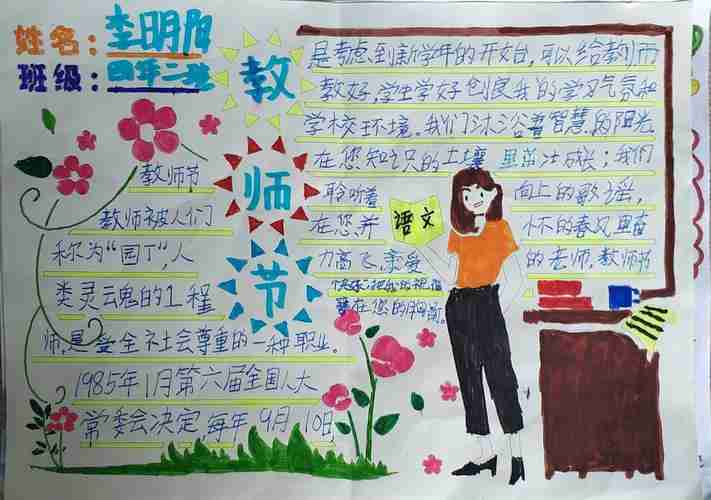 姓名：李明阳
班级：四年二班
教师节
教师节
教师被人们
称为“园丁”，人
类灵魂的工程
师，是受全社会尊重的一种职业。
1985年1月第六届全国人大
常委会决定，每年9月10日
是考虑到新学年的开始，可以给教师
教好，学生学好创良我的学习气氛和
学校环境。我们沐浴着智慧的阳光
在您知识的土壤里茁壮成长；我们
聆听着 向上的歌谣，
在您并 怀的春风里奋
力高飞，亲爱 的老师，教师节
快乐！把我的祝福
替在您的胸前。
语文